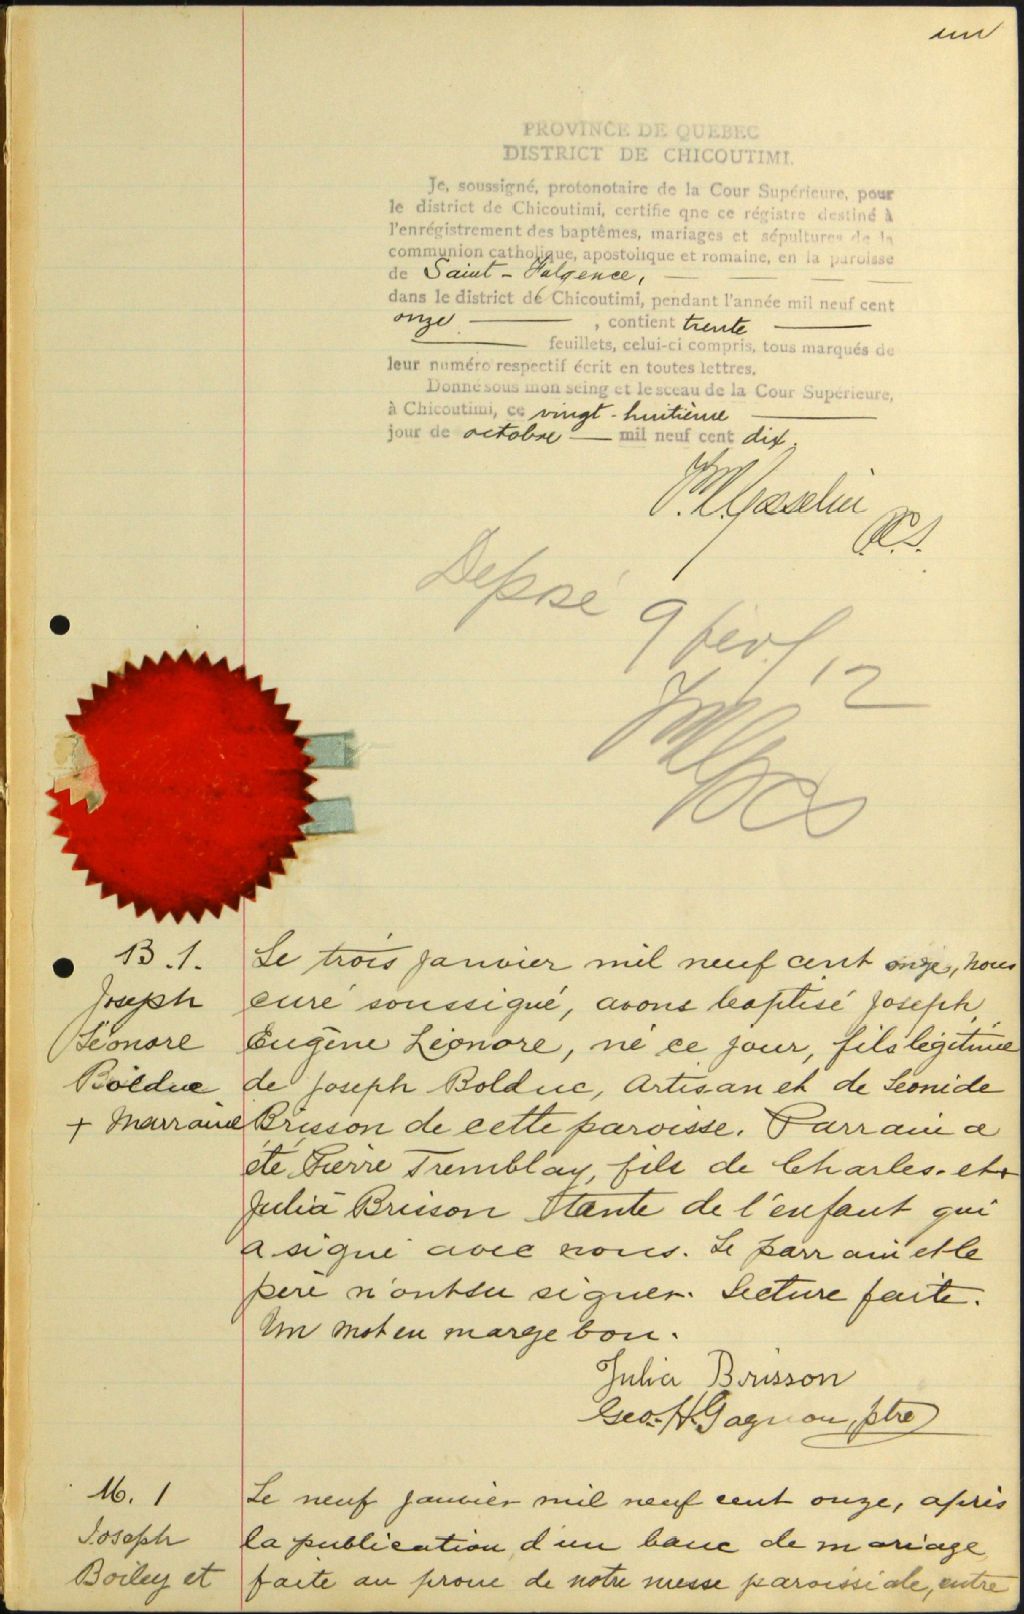 un
PROVINCE DE QUEBEC
DISTRICT DE CHICOUTIMI.
Je, soussigné, protonotaire de la Cour Supérieure, pour
le district de Chicoutimi, certifie qne ce régistre destiné à
l'enrégistrement des baptêmes, mariages et sépultures de la
communion catholique, apostolique et romaine, en la paroisse
de Saint-Fulgence,
dans le district de Chicoutimi, pendant l'année mil neuf cent
onze, contient trente
feuillets, celui-ci compris, tous marqués de
leur numéro respectif écrit en toutes lettres.
Donné sous mon seing et le sceau de la Cour Supérieure,
à Chicoutimi, ce vingt-huitième
jour de octobre mil neuf cent dix.
Gosselin
P.C.S.
Déposé
9 fév. 12
B.1.
Joseph
Léonore
Bolduc
+ Marraine
Le trois janvier mil neuf cent onze, nous
curé soussigné, avons baptisé Joseph
Eugène Léonore, né ce jour, fils légitime
de Joseph Bolduc, artisan et de Leonide
Brisson de cette paroisse. Parrain a
été Pierre Tremblay, fils de Charles. et +
Julia Brisson tante de l'enfant qui
a signé avec nous. Le parrain et le
père n'ont su signer. Lecture faite.
Un mot en marge bon.
Julia Brisson
Geo. H. Gagnon, ptre
M. 1
Joseph
Boiley et
Le neuf janvier mil neuf cent onze, après
la publication d'un banc de mariage
faite au prone de notre messe paroissiale, entre